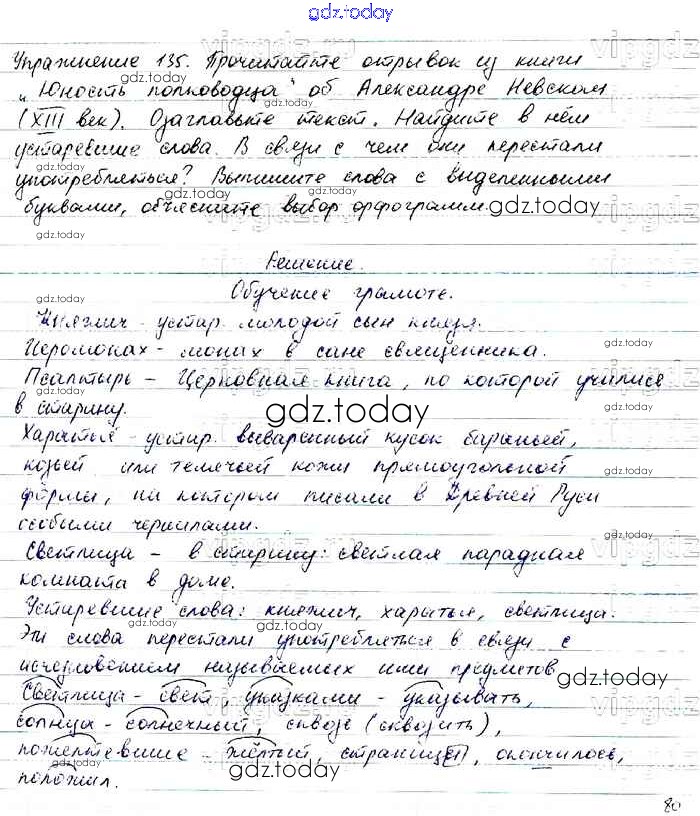 gdz.today
Упражнение 135. Прочитайте отрывок из книги
„Юность полководца" об Александре Невском
(XIII век). Озаглавьте текст. Найдите в нём
устаревшие слова. В связи с чем они перестали
употребляться? Выпишите слова с выделенными
буквами, объясните выбор орфограмм.
Решение.
Обучение грамоте.
Княжич - устар. молодой сын князя.
Иеромонах - монах в сане священника.
Псалтырь - Церковная книга, по которой учились
в старину.
Харатья - устар. вываренный кусок бараньей,
козьей или телячьей кожи прямоугольной
формы, на котором писали в Древней Руси
особыми чернилами.
Светлица - в старину: светлая парадная
комната в доме.
Устаревшие слова: княжич, харатья, светлица.
Эти слова перестали употребляться в связи с
исчезновением называемых ими предметов
Светлица - свет, указками - указывать,
солнца - солнечный, сквозь (сквозить),
пожелтевшие - жёлтый, страницы, окончилось,
положил.
80